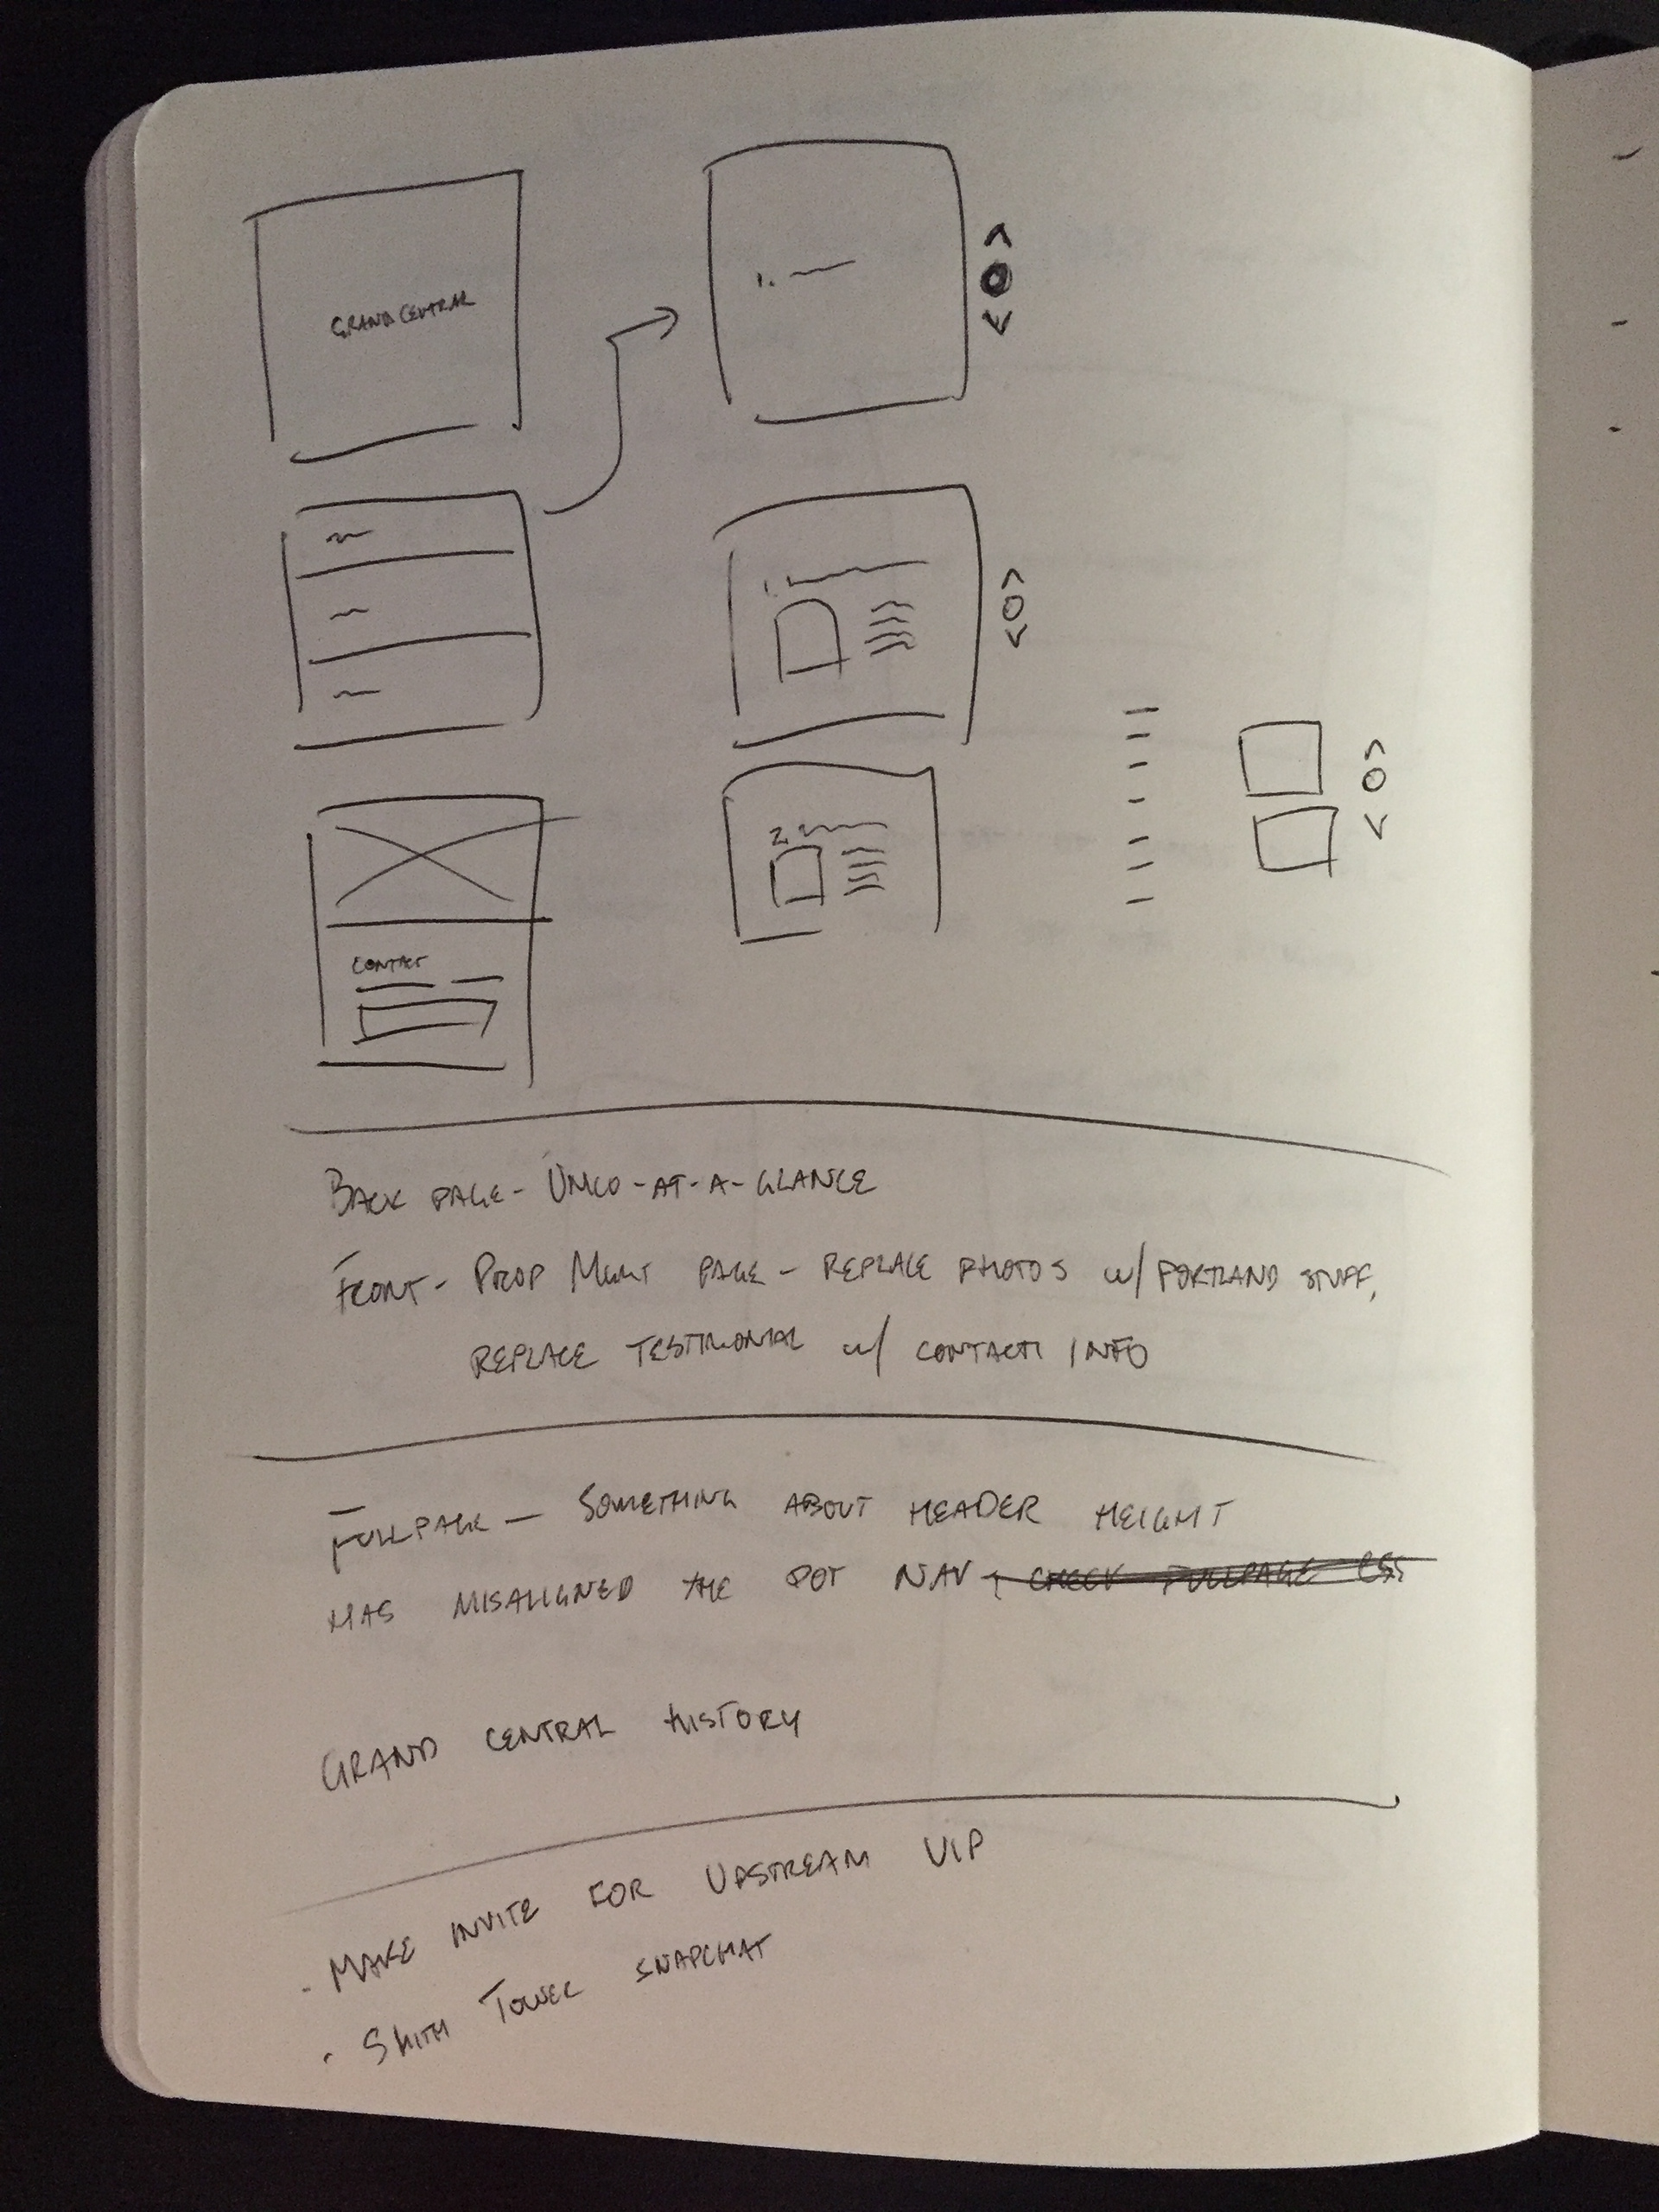 GRAND CENTRAL
1.
1.
2.
CONTACT
BACK PAGE - UNICO-AT-A-GLANCE
FRONT - PROP MGMT PAGE - REPLACE PHOTOS w/ PORTLAND STUFF,
REPLACE TESTIMONIAL w/ CONTACT INFO
FULLPAGE - SOMETHING ABOUT HEADER HEIGHT
HAS MISALIGNED THE DOT NAV - CHECK FULLPAGE CSS
GRAND CENTRAL HISTORY
· MAKE INVITE FOR UPSTREAM VIP
· SMITH TOWER SNAPCHAT